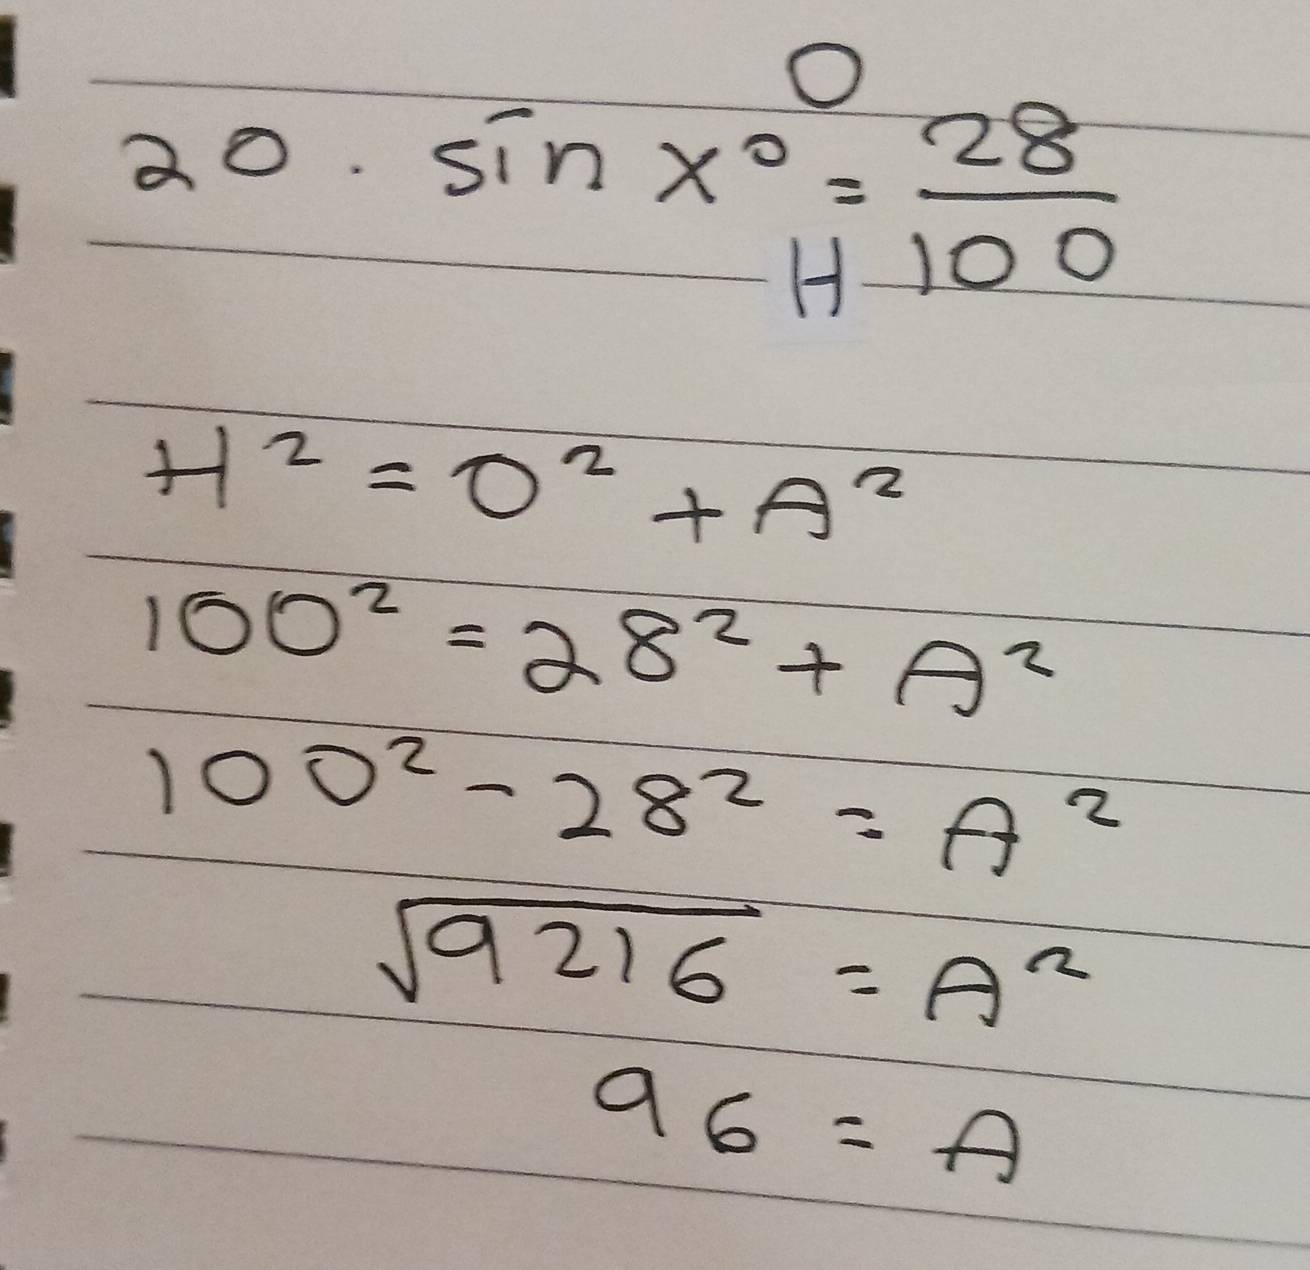 O
20. sin x° = 28/100
H
H² = O² + A²
100² = 28² + A²
100² - 28² = A²
√9216 = A²
96 = A